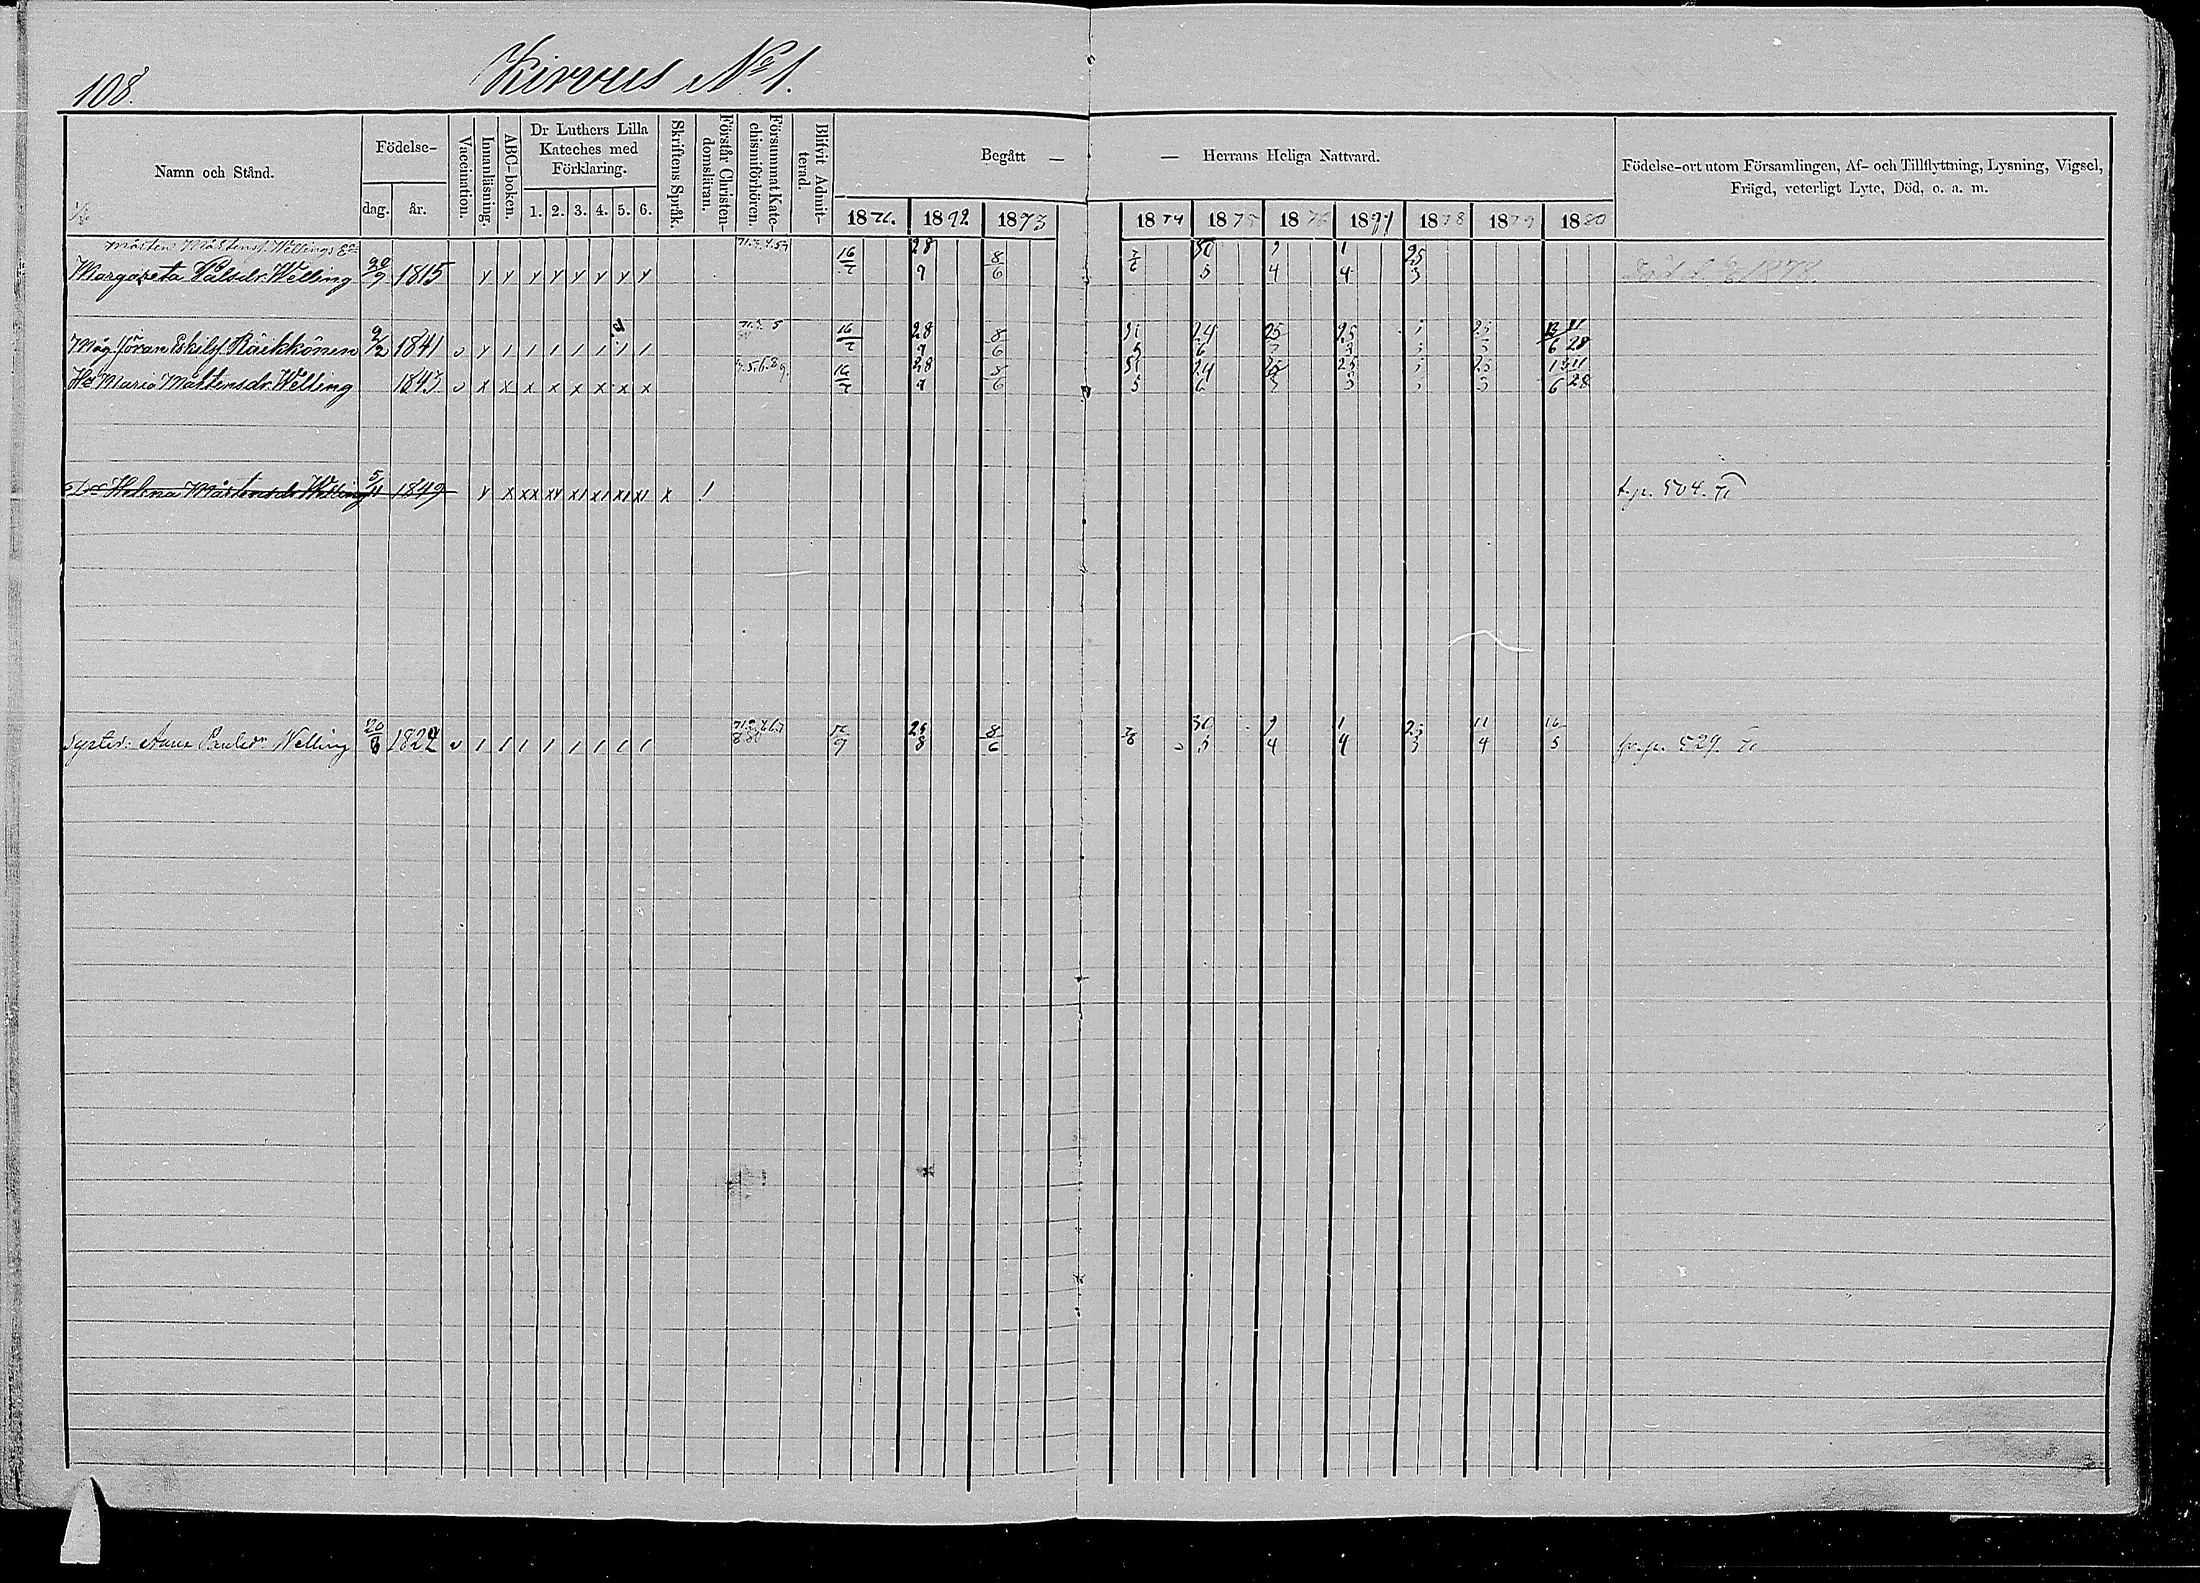 108.
Kirvus No 1.
Namn och Stånd.
Födelse-
dag. år.
Vaccination.
Innanläsning.
ABC-boken.
Dr Luthers Lilla Kateches med Förklaring.
1. 2. 3. 4. 5. 6.
Skriftens Språk.
Förstår Christen-domsläran.
Försummat Kate-chismiförhören.
Blifvit Admit-terad.
Begått — — Herrans Heliga Nattvard.
1871. 1872 1873 1874 1875 1876 1877 1878 1879 1880
Födelse-ort utom Församlingen, Af- och Tillflyttning, Lysning, Vigsel,
Frägd, veterligt Lyte, Död, o. a. m.
Mårten Mårtens. Wellings Ea
Margareta Pålsdr. Welling 20/9 1815 16/7 28/9 8/6 30/5 1/4 25/3 Död 1878.
Måg. Jöran Eskilss. Räikkönen 9/2 1841 16/7 28/9 8/6 31/5 24/6 25/3 25/3 25/3 13/6 11/28
Hu Maria Mårtensdr. Welling 1843 16/7 28/9 8/6 31/5 24/6 25/3 25/3 25/3 13/6 11/28
Dr Helena Mårtensdr Welling 5/11 1849 t. p. 504.
Syster: Anna Paulsdr Welling 1822 8/6 30/5 1/4 25/3 11/4 16/5 fr. p. 529.